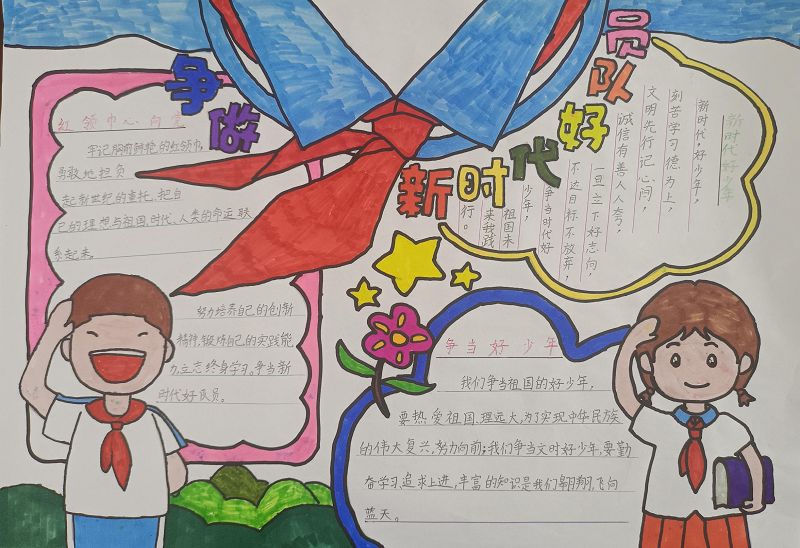 争做
新时代好队员
红领巾心向党
牢记胸前鲜艳的红领巾,
勇敢地担负
起新世纪的重托,把自
己的理想与祖国、时代、人类的命运联
系起来。
努力培养自己的创新
精神,锻炼自己的实践能
力,立志终身学习。争当新
时代好队员。
新时代好少年
新时代,好少年,
刻苦学习德为上,
文明先行记心间,
诚信有善人人夸,
一旦立下好志向,
不达目标不放弃,
争当时代好
少年,
祖国未
来我践
行。
争当好少年
我们争当祖国的好少年,
要热爱祖国、理远大,为了实现中华民族
的伟大复兴,努力向前;我们争当文时好少年,要勤
奋学习,追求上进,丰富的知识是我们翱翔,飞向
蓝天。